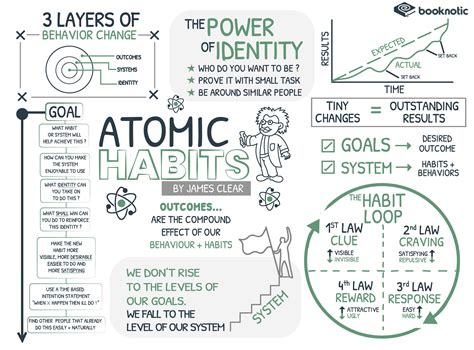 3 LAYERS OF
BEHAVIOR CHANGE
OUTCOMES
SYSTEMS
IDENTITY
THE POWER
OF IDENTITY
★ WHO DO YOU WANT TO BE ?
★ PROVE IT WITH SMALL TASK
★ BE AROUND SIMILAR PEOPLE
booknotic
RESULTS
EXPECTED
ACTUAL
SET BACK
SET BACK
TIME
TINY CHANGES = OUTSTANDING RESULTS
☑ GOALS → DESIRED OUTCOME
☑ SYSTEM → HABITS + BEHAVIORS
GOAL
WHAT HABIT
OR SYSTEM WILL
HELP ACHIEVE THIS ?
HOW CAN YOU MAKE
THE SYSTEM
ENJOYABLE TO USE
WHAT IDENTITY CAN
YOU TAKE ON
TO DO THIS ?
WHAT SMALL WIN CAN
YOU DO TO REINFORCE
THIS IDENTITY ?
MAKE THE NEW
HABIT MORE
VISIBLE, MORE DESIRABLE
EASIER TO DO AND
MORE SATISFYING
USE A TIME BASED
INTENTION STATEMENT
"WHEN X HAPPEN THEN ILL DO Y"
FIND OTHER PEOPLE THAT ALREADY
DO THIS EASILY + NATURALLY
ATOMIC
HABITS
BY JAMES CLEAR
OUTCOMES...
ARE THE COMPOUND
EFFECT OF OUR
BEHAVIOUR + HABITS
WE DON'T RISE
TO THE LEVELS OF
OUR GOALS.
WE FALL TO THE
LEVEL OF OUR SYSTEM
SYSTEM
THE HABIT
LOOP
1ST LAW
CLUE
↑ VISIBLE
↓ INVISIBLE
2ND LAW
CRAVING
↑ SATISFYING
↓ REPULSIVE
4TH LAW
REWARD
↑ ATTRACTIVE
↓ UGLY
3RD LAW
RESPONSE
↑ EASY
↓ HARD